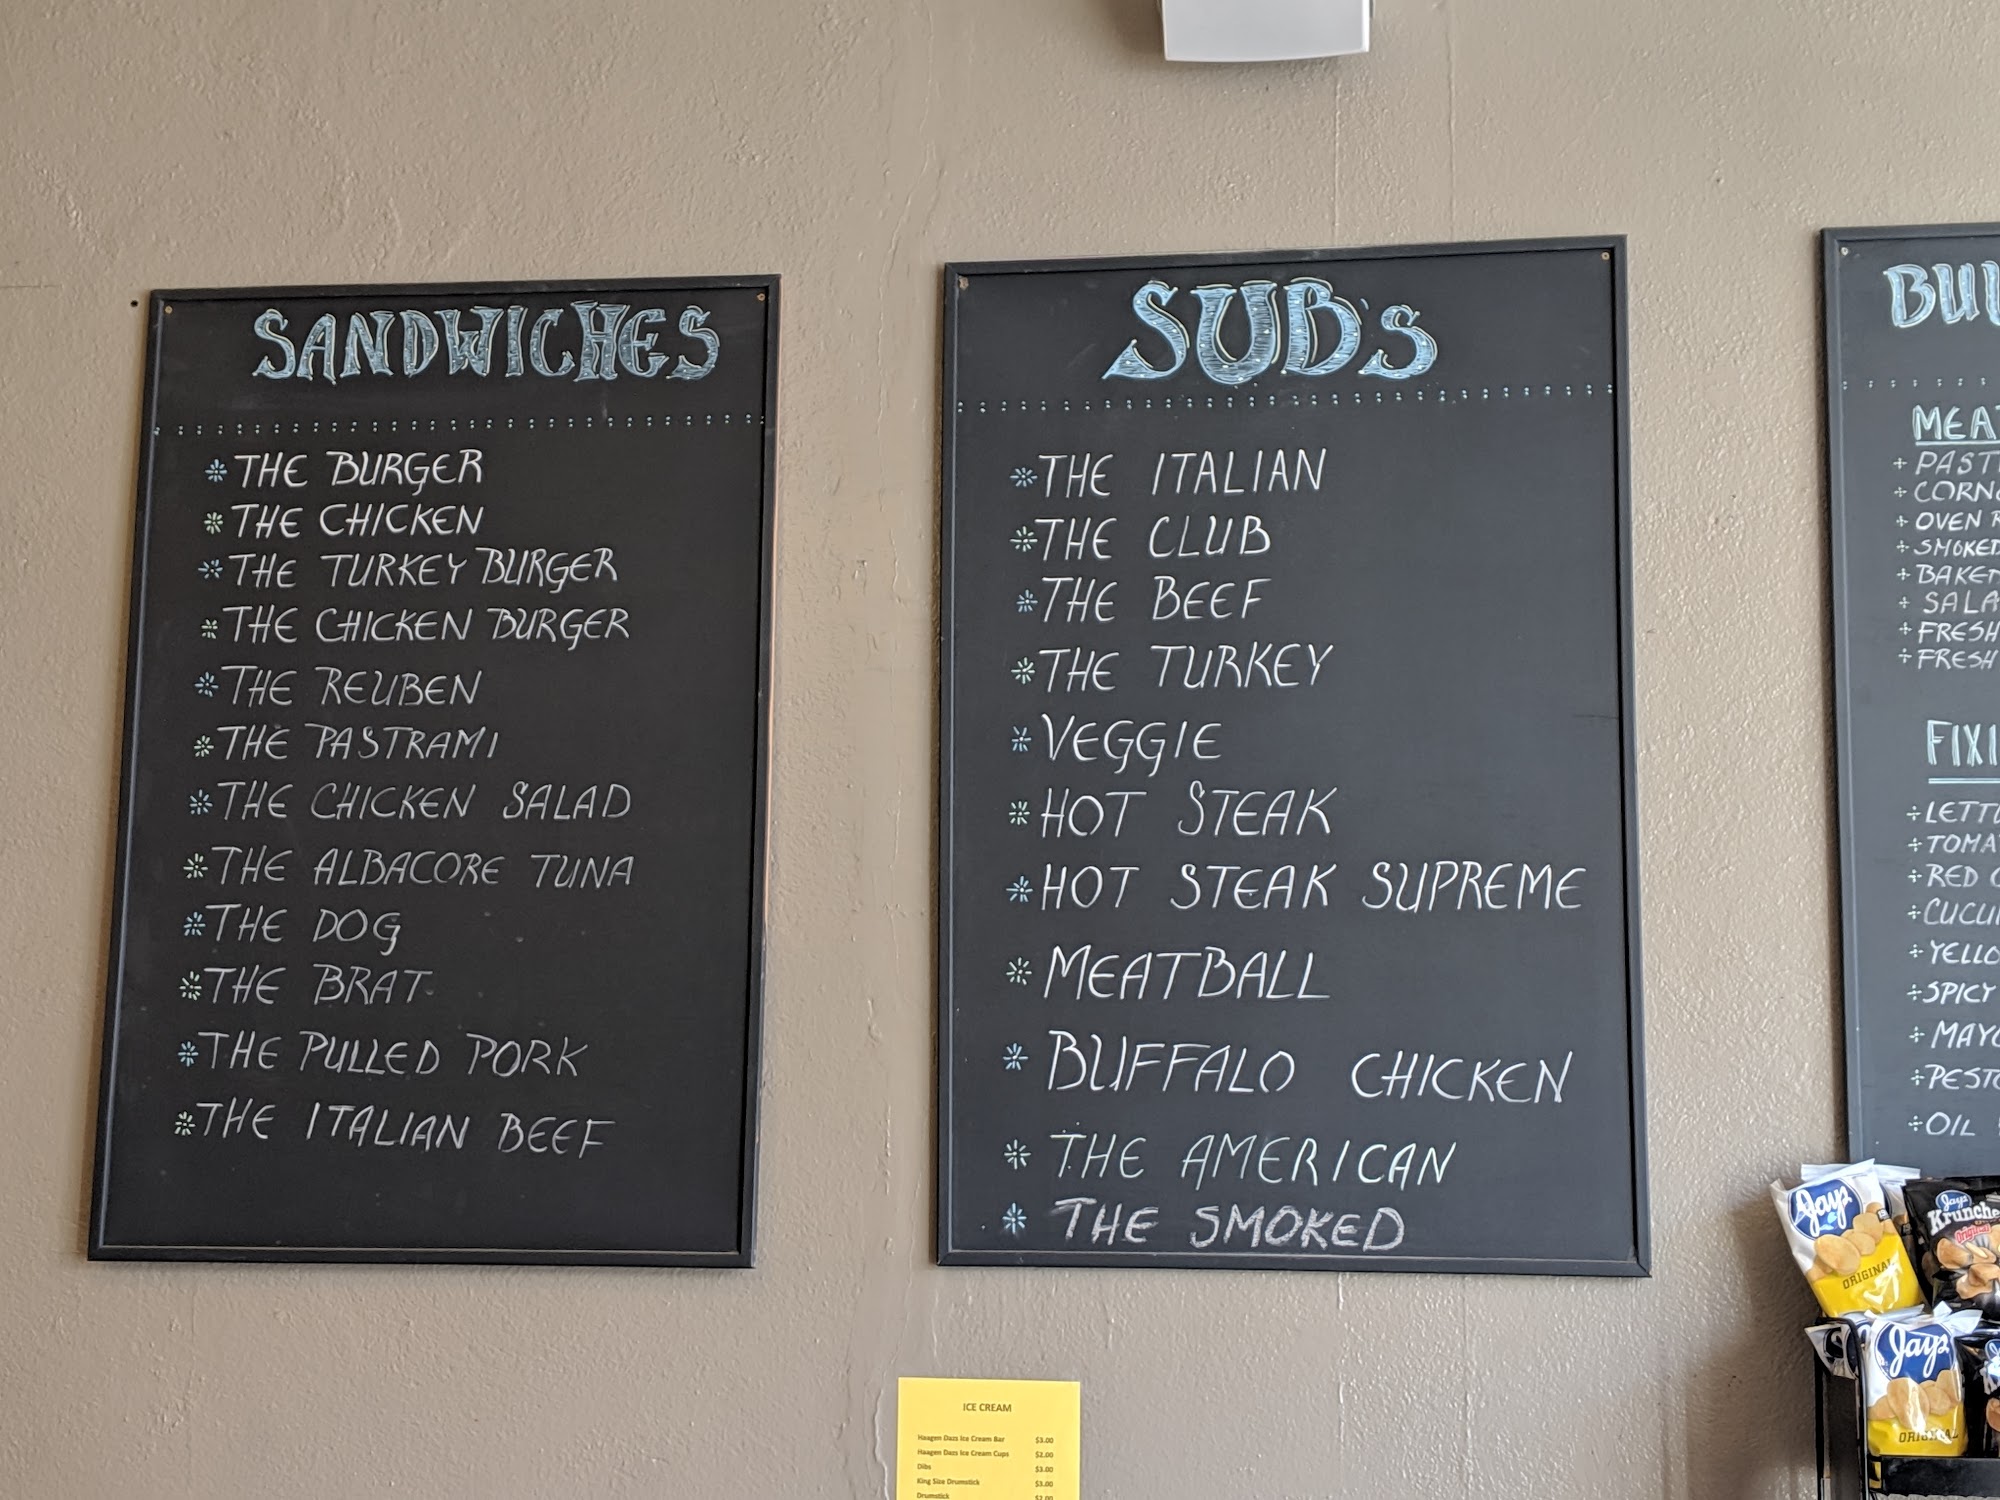 SANDWICHES
THE BURGER
THE CHICKEN
THE TURKEY BURGER
THE CHICKEN BURGER
THE REUBEN
THE PASTRAMI
THE CHICKEN SALAD
THE ALBACORE TUNA
THE DOG
THE BRAT
THE PULLED PORK
THE ITALIAN BEEF
SUB's
THE ITALIAN
THE CLUB
THE BEEF
THE TURKEY
VEGGIE
HOT STEAK
HOT STEAK SUPREME
MEATBALL
BUFFALO CHICKEN
THE AMERICAN
THE SMOKED
MEAT
OVEN
SMOKED
BAKED
FRESH
FRESH
RED
SPICY
OIL
Jays
ORIGINAL
Jays
Original
Jays
ORIGINAL
ICE CREAM
Haagen Dazs Ice Cream Bar $3.00
Haagen Dazs Ice Cream Cups $2.00
Dibs $3.00
King Size Drumstick $3.00
Drumstick $2.00